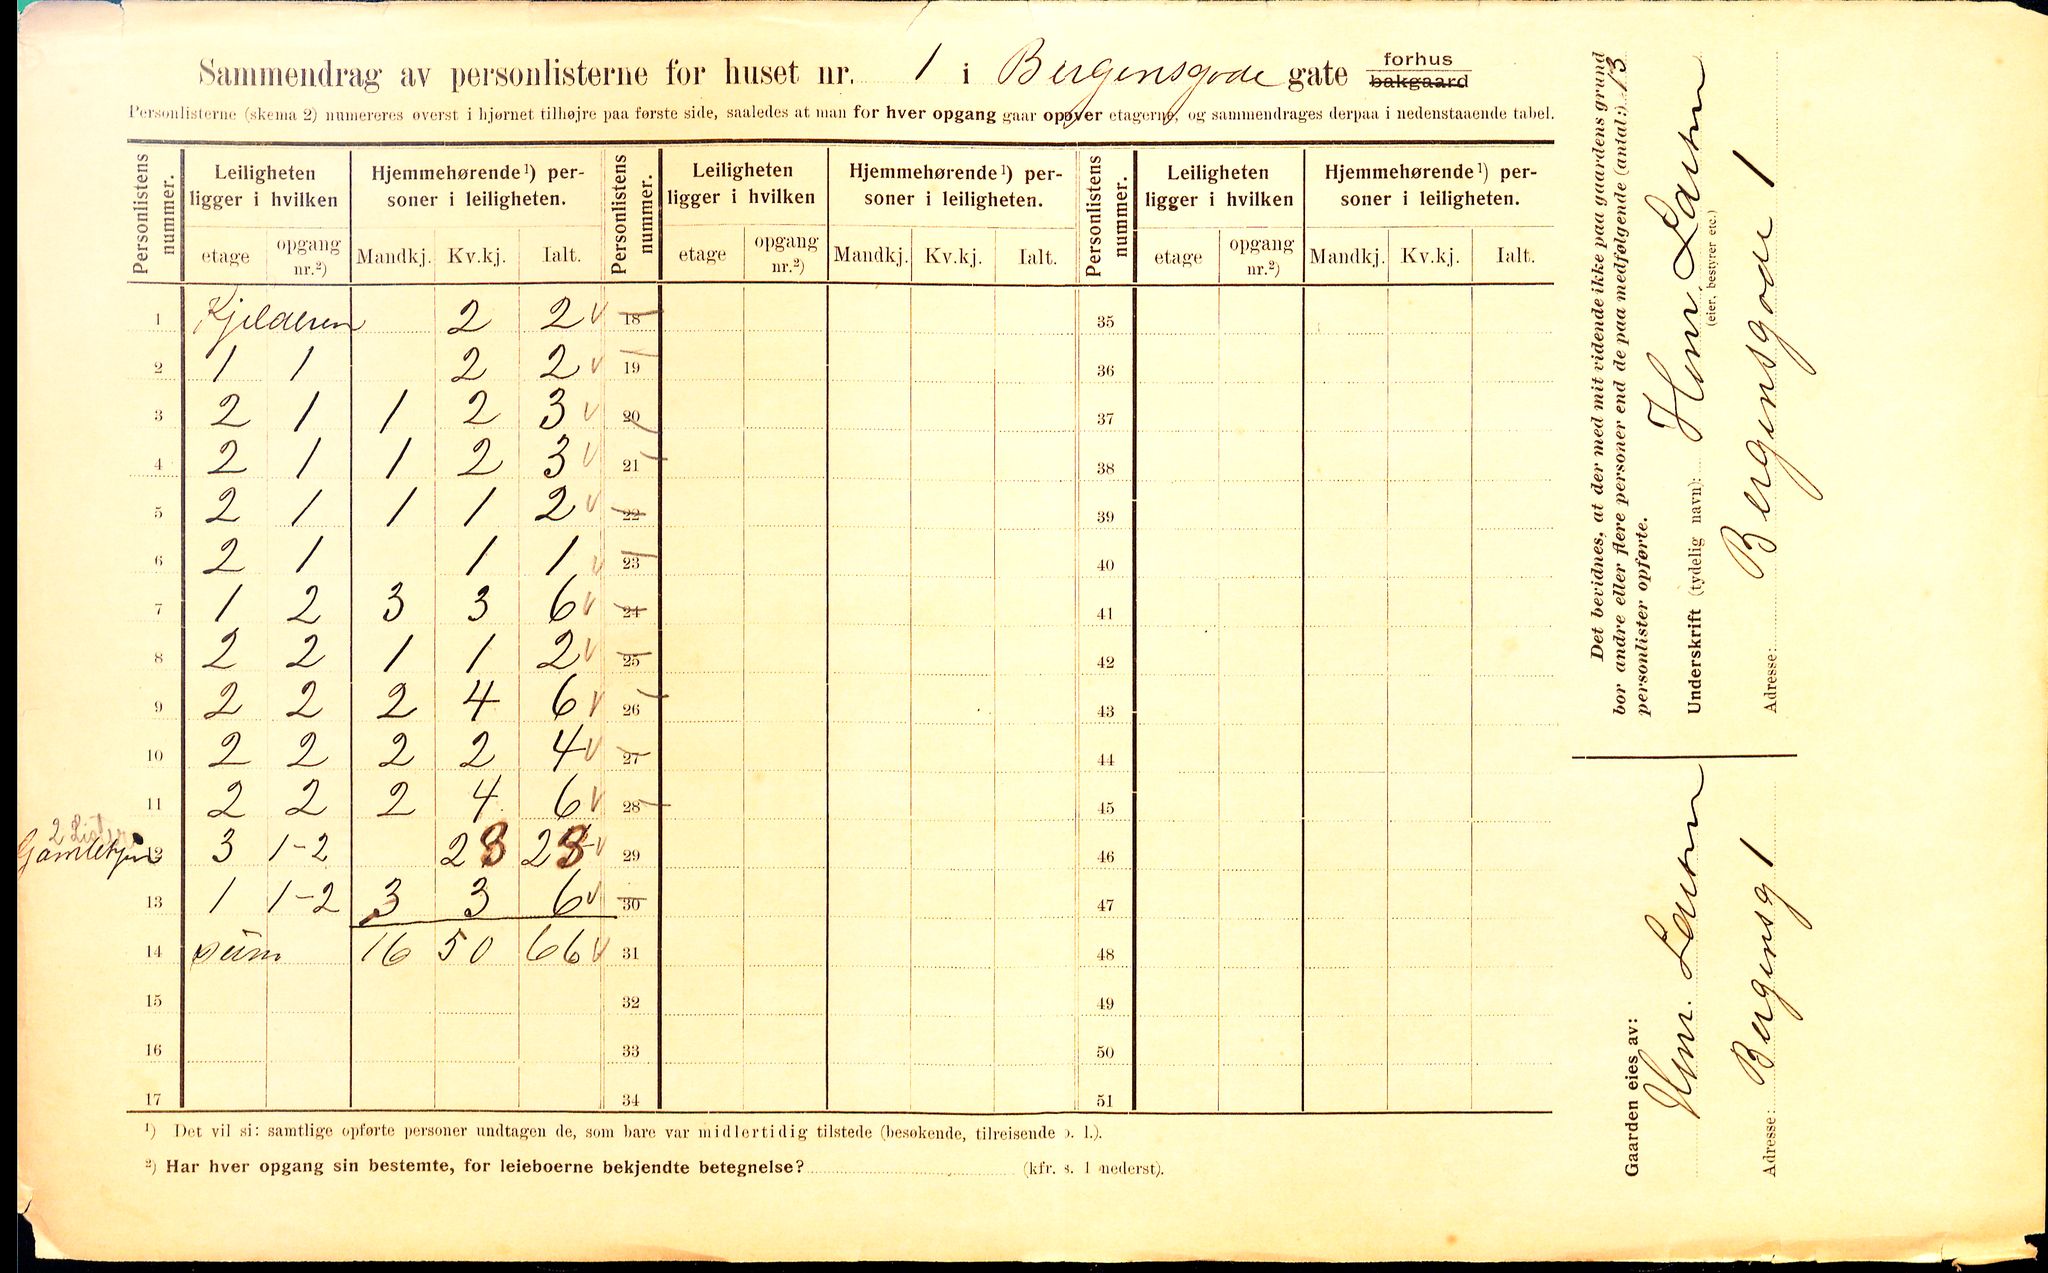 Sammendrag av personlisterne for huset nr. 1 i Bergensgade gate forhus bakgaard
Personlisterne (skema 2) numereres øverst i hjørnet tilhøjre paa første side, saaledes at man for hver opgang gaar opover etagerne, og sammendrages derpaa i nedenstaaende tabel.
Personlistens nummer. Leiligheten ligger i hvilken Hjemmehørende ¹) personer i leiligheten. Personlistens nummer. Leiligheten ligger i hvilken Hjemmehørende ¹) personer i leiligheten. Personlistens nummer. Leiligheten ligger i hvilken Hjemmehørende ¹) personer i leiligheten.
etage opgang nr.²) Mandkj. Kv.kj. Ialt. etage opgang nr.²) Mandkj. Kv.kj. Ialt. etage opgang nr.²) Mandkj. Kv.kj. Ialt.
1 Kjelderen 2 2 18 35
2 1 1 2 2 19 36
3 2 1 1 2 3 20 37
4 2 1 1 2 3 21 38
5 2 1 1 1 2 22 39
6 2 1 1 1 23 40
7 1 2 3 3 6 24 41
8 2 2 1 1 2 25 42
9 2 2 2 4 6 26 43
10 2 2 2 2 4 27 44
11 2 2 2 4 6 28 45
2 Lister
Gamlehjem 12 3 1-2 23 23 29 46
13 1 1-2 3 3 6 30 47
14 sum 16 50 66 31 48
15 32 49
16 33 50
17 34 51
¹) Det vil si: samtlige opførte personer undtagen de, som bare var midlertidig tilstede (besøkende, tilreisende o. l.).
²) Har hver opgang sin bestemte, for leieboerne bekjendte betegnelse? (kfr. s. 1 nederst).
Det bevidnes, at der med mit vidende ikke paa gaardens grund
bor andre eller flere personer end de paa medfølgende (antal:) 13
personlister opførte.
Underskrift (tydelig navn): Henr. Larsen
(eier, bestyrer etc.)
Adresse: Bergensgade 1
Gaarden eies av:
Henr. Larsen
Adresse: Bergensg 1